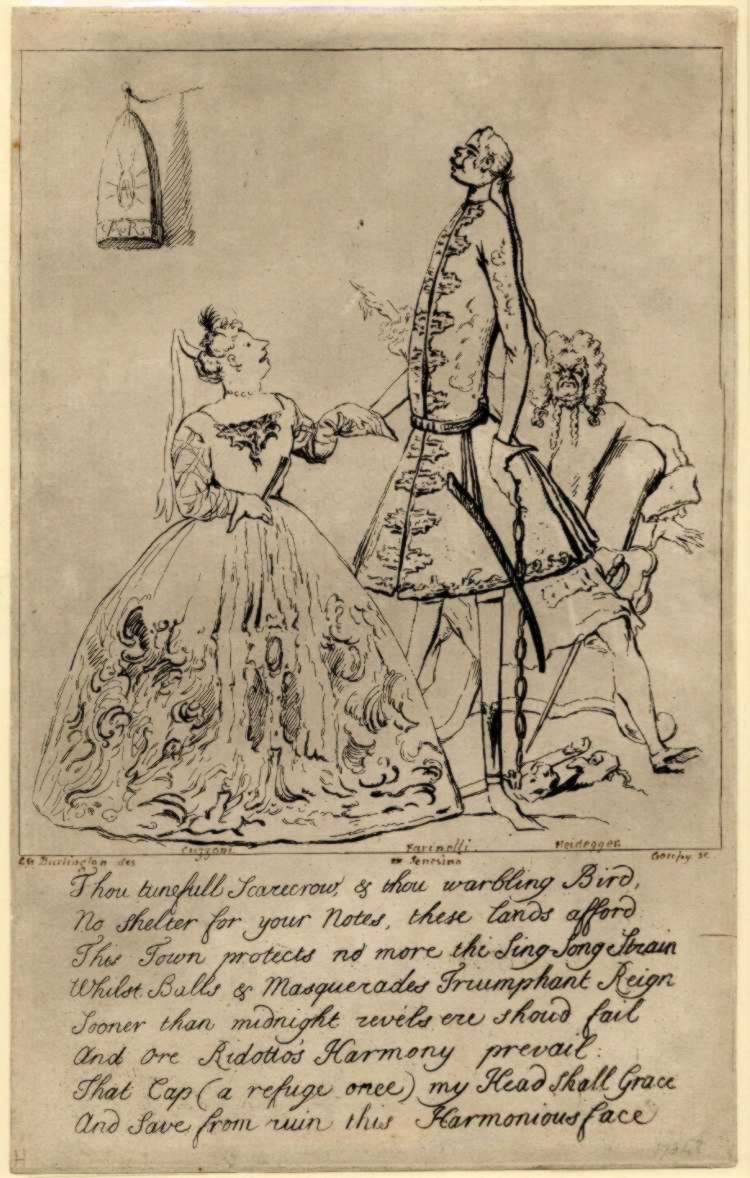 Cuzzoni.
Farinelli.
Heidegger
Lsr Burlington des
or Senesino
Goupy sc
Thou tunefull Scarecrow, & thou warbling Bird,
No shelter for your Notes, these lands afford
This Town protects no more the Sing-Song Strain
Whilst Balls & Masquerades Triumphant Reign
Sooner than midnight revels ere shoud fail
And ore Ridotto's Harmony prevail:
That Cap (a refuge once) my Head shall Grace
And Save from ruin this Harmonious face
H